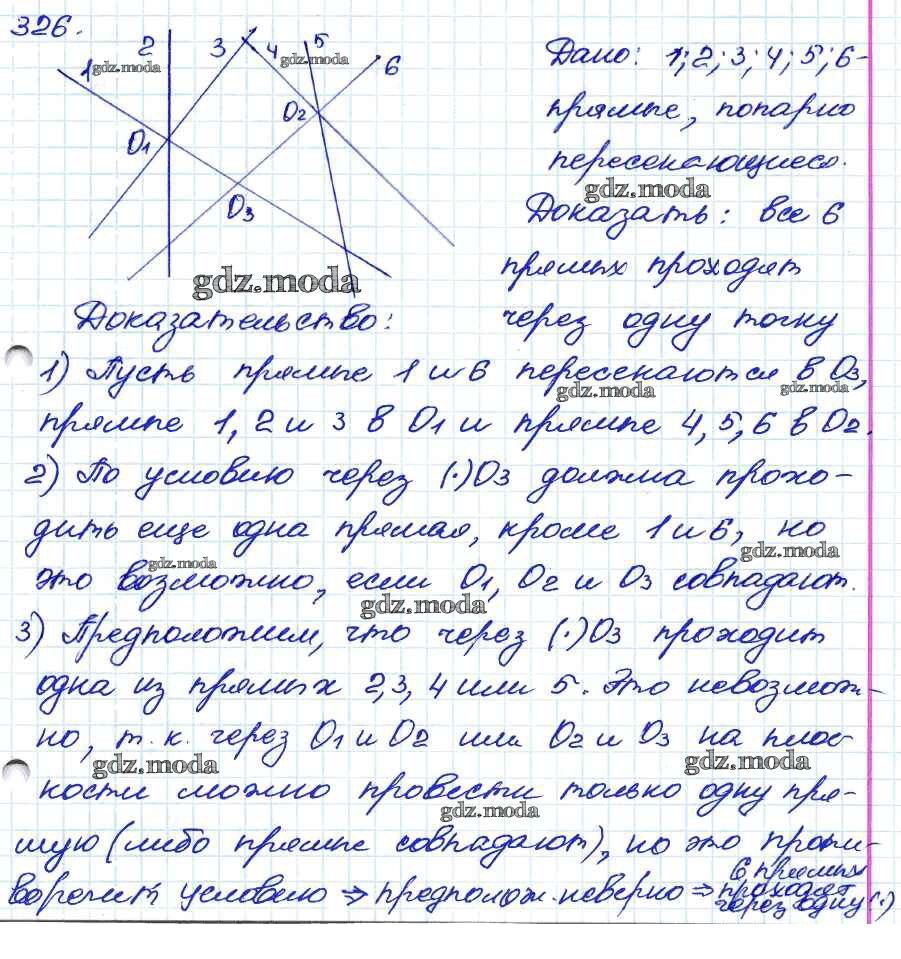 326.
2 3 4 5
1 gdz.moda gdz.moda 6
O1 O2
O3
gdz.moda
Дано: 1; 2; 3; 4; 5; 6-
прямые, попарно
пересекающиеся.
gdz.moda
Доказать: все 6
прямых проходят
через одну точку
Доказательство:
1) Пусть прямые 1 и 6 пересекаются в O3,
gdz.moda gdz.moda
прямые 1, 2 и 3 в O1 и прямые 4, 5, 6 в O2.
2) По условию через (·)O3 должна прохо-
дить еще одна прямая, кроме 1 и 6, но
gdz.moda gdz.moda
это возможно, если O1, O2 и O3 совпадают.
gdz.moda
3) Предположим, что через (·)O3 проходит
одна из прямых 2, 3, 4 или 5. Это невозмож-
но, т.к. через O1 и O2 или O2 и O3 на плос-
gdz.moda gdz.moda
кости можно провести только одну пря-
gdz.moda
мую (либо прямые совпадают), но это проти-
воречит условию ⇒ предполож. неверно ⇒ 6 прямых
проходят
через одну (·)